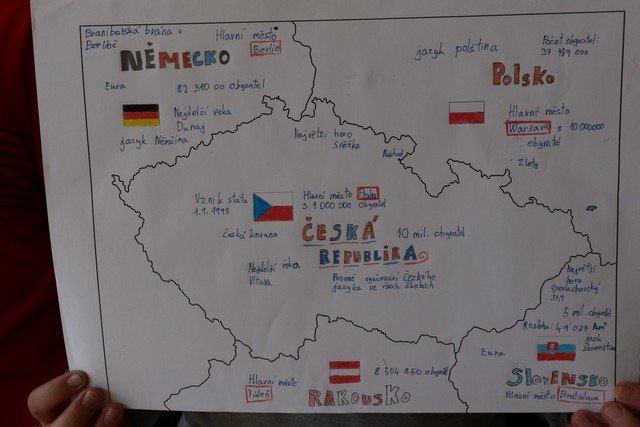 Braniborská brána v
Berlíně
Hlavní město
Berlín
NĚMECKO
Eura
82 310 00 obyvatel
Nejdelší řeka
Dunaj
jazyk Němčina
jazyk polština
Počet obyvatel:
POLSKO
Hlavní město
Waršava s 10 000000
obyvatel
Zloty
Největší hora
sněžka
Náchod
Vznik státu
1.1. 1993
Hlavní město Praha
s 1.000 000 obyvatel
Česká koruna
ČESKÁ
REPUBLIKA
10 mil. obyvatel
Nejdelší řeka
Vltava
Povinné vyučování Českého
jazyka ve všech školách
Největší
hora
Gerlachovský
štít
5 mil. obyvatel
Rozloha: 49 025 km²
jazik
slovenština
Eura
SLOVENSKO
Hlavní město Bratislava
8 504 850 obyvatel
Hlavní město
Vídeň
RAKOUSKO